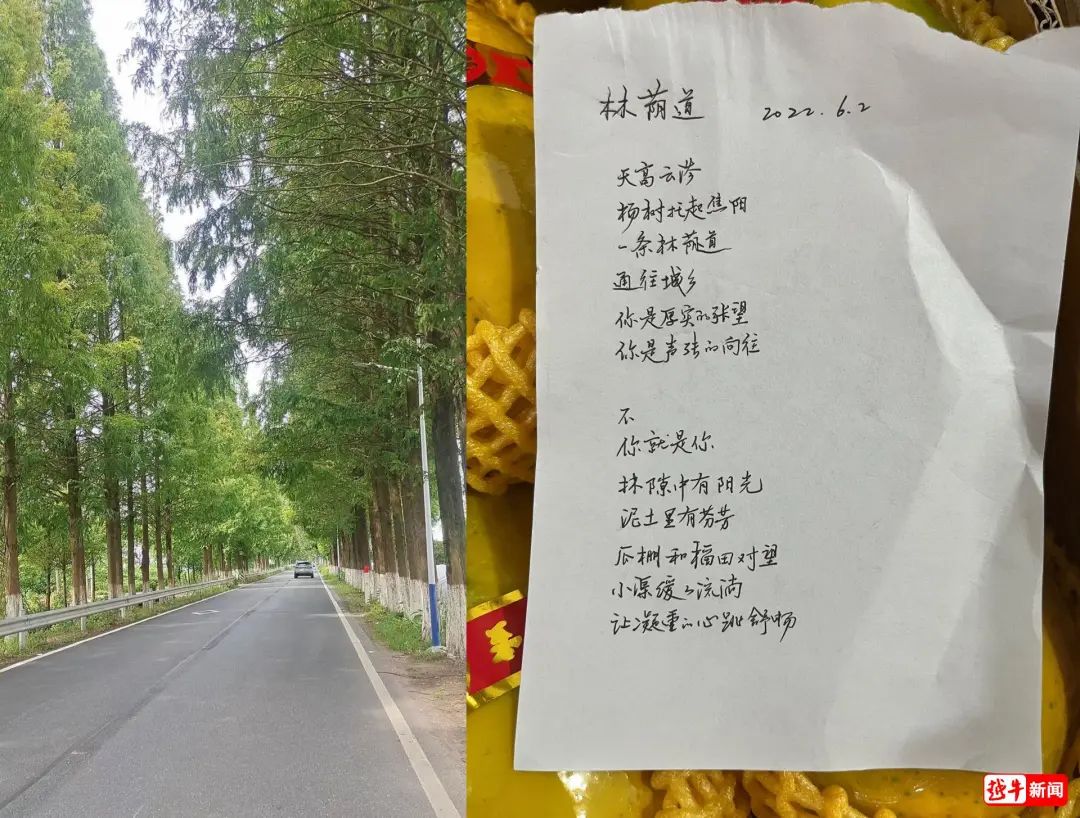 林荫道 2022.6.2
天高云淡
杨树托起焦阳
一条林荫道
通往城乡
你是厚实的张望
你是声张的向往
不
你就是你
林隙中有阳光
泥土里有芬芳
瓜棚和稻田对望
小渠缓缓流淌
让凝重的心跳舒畅
越牛新闻